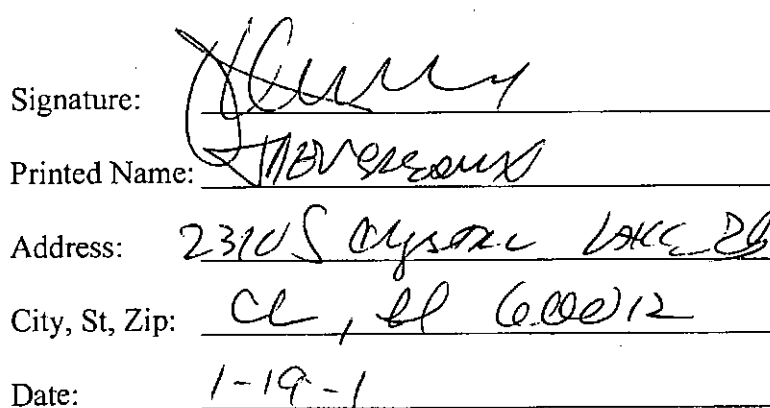 Signature:
Printed Name:
Address: 2310 S Crystal Lake Rd
City, St, Zip: CL, Il 60012
Date: 1-19-1